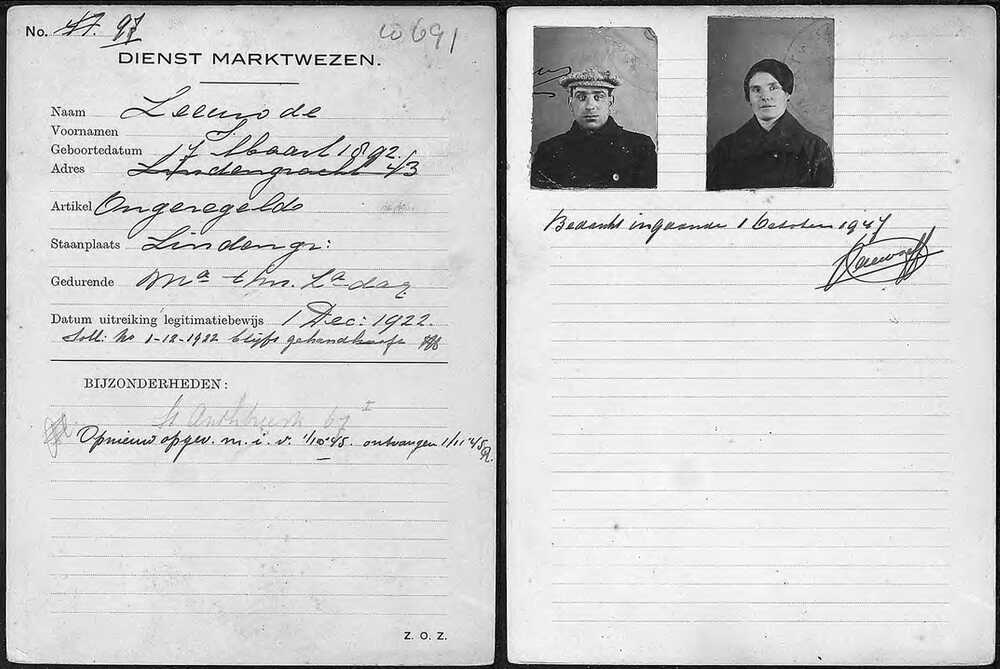 No. 47. 97
691
DIENST MARKTWEZEN.
Naam Leeuw de
Voornamen
Geboortedatum 17 Maart 1892.
Adres Lindengracht 43
Artikel Ongeregelde
Staanplaats Lindengr:
Gedurende Ma t/m. Zadag
Datum uitreiking legitimatiebewijs 1 Dec: 1922.
Soll: No 1-12-1922 blijft gehandhaafd
BIJZONDERHEDEN:
67 I
Opnieuw opgev. m. i. v. 1/10'45. ontvangen 1/11'45
Z. O. Z.
Bedankt ingaande 1 October 1947